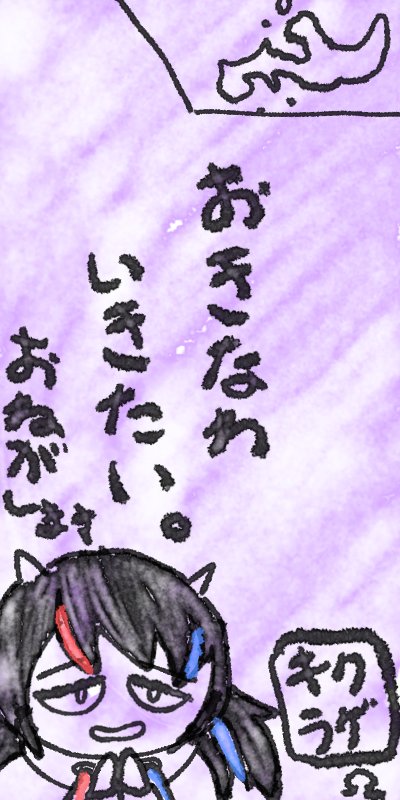 おきなわ
いきたい。
おねがします
キクラゲ